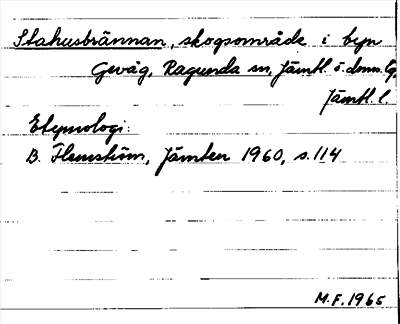 Stahusbrännan, skogsområde i byn
Gevåg, Ragunda sn, Jämtl. ö. doms. lg,
Jämtl. l.
Etymologi:
B. Flemström, Jämten 1960, s. 114
M.F. 1965